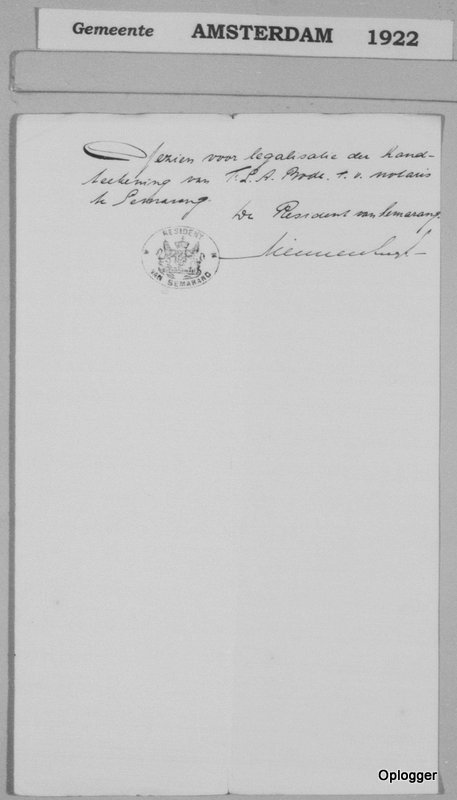 Gemeente AMSTERDAM 1922
Gezien voor legalisatie der hand-
teekening van F. L. A. Bode. t. v. notaris
te Semarang.
De Resident van Semarang.
RESIDENT
VAN SEMARANG
Oplogger